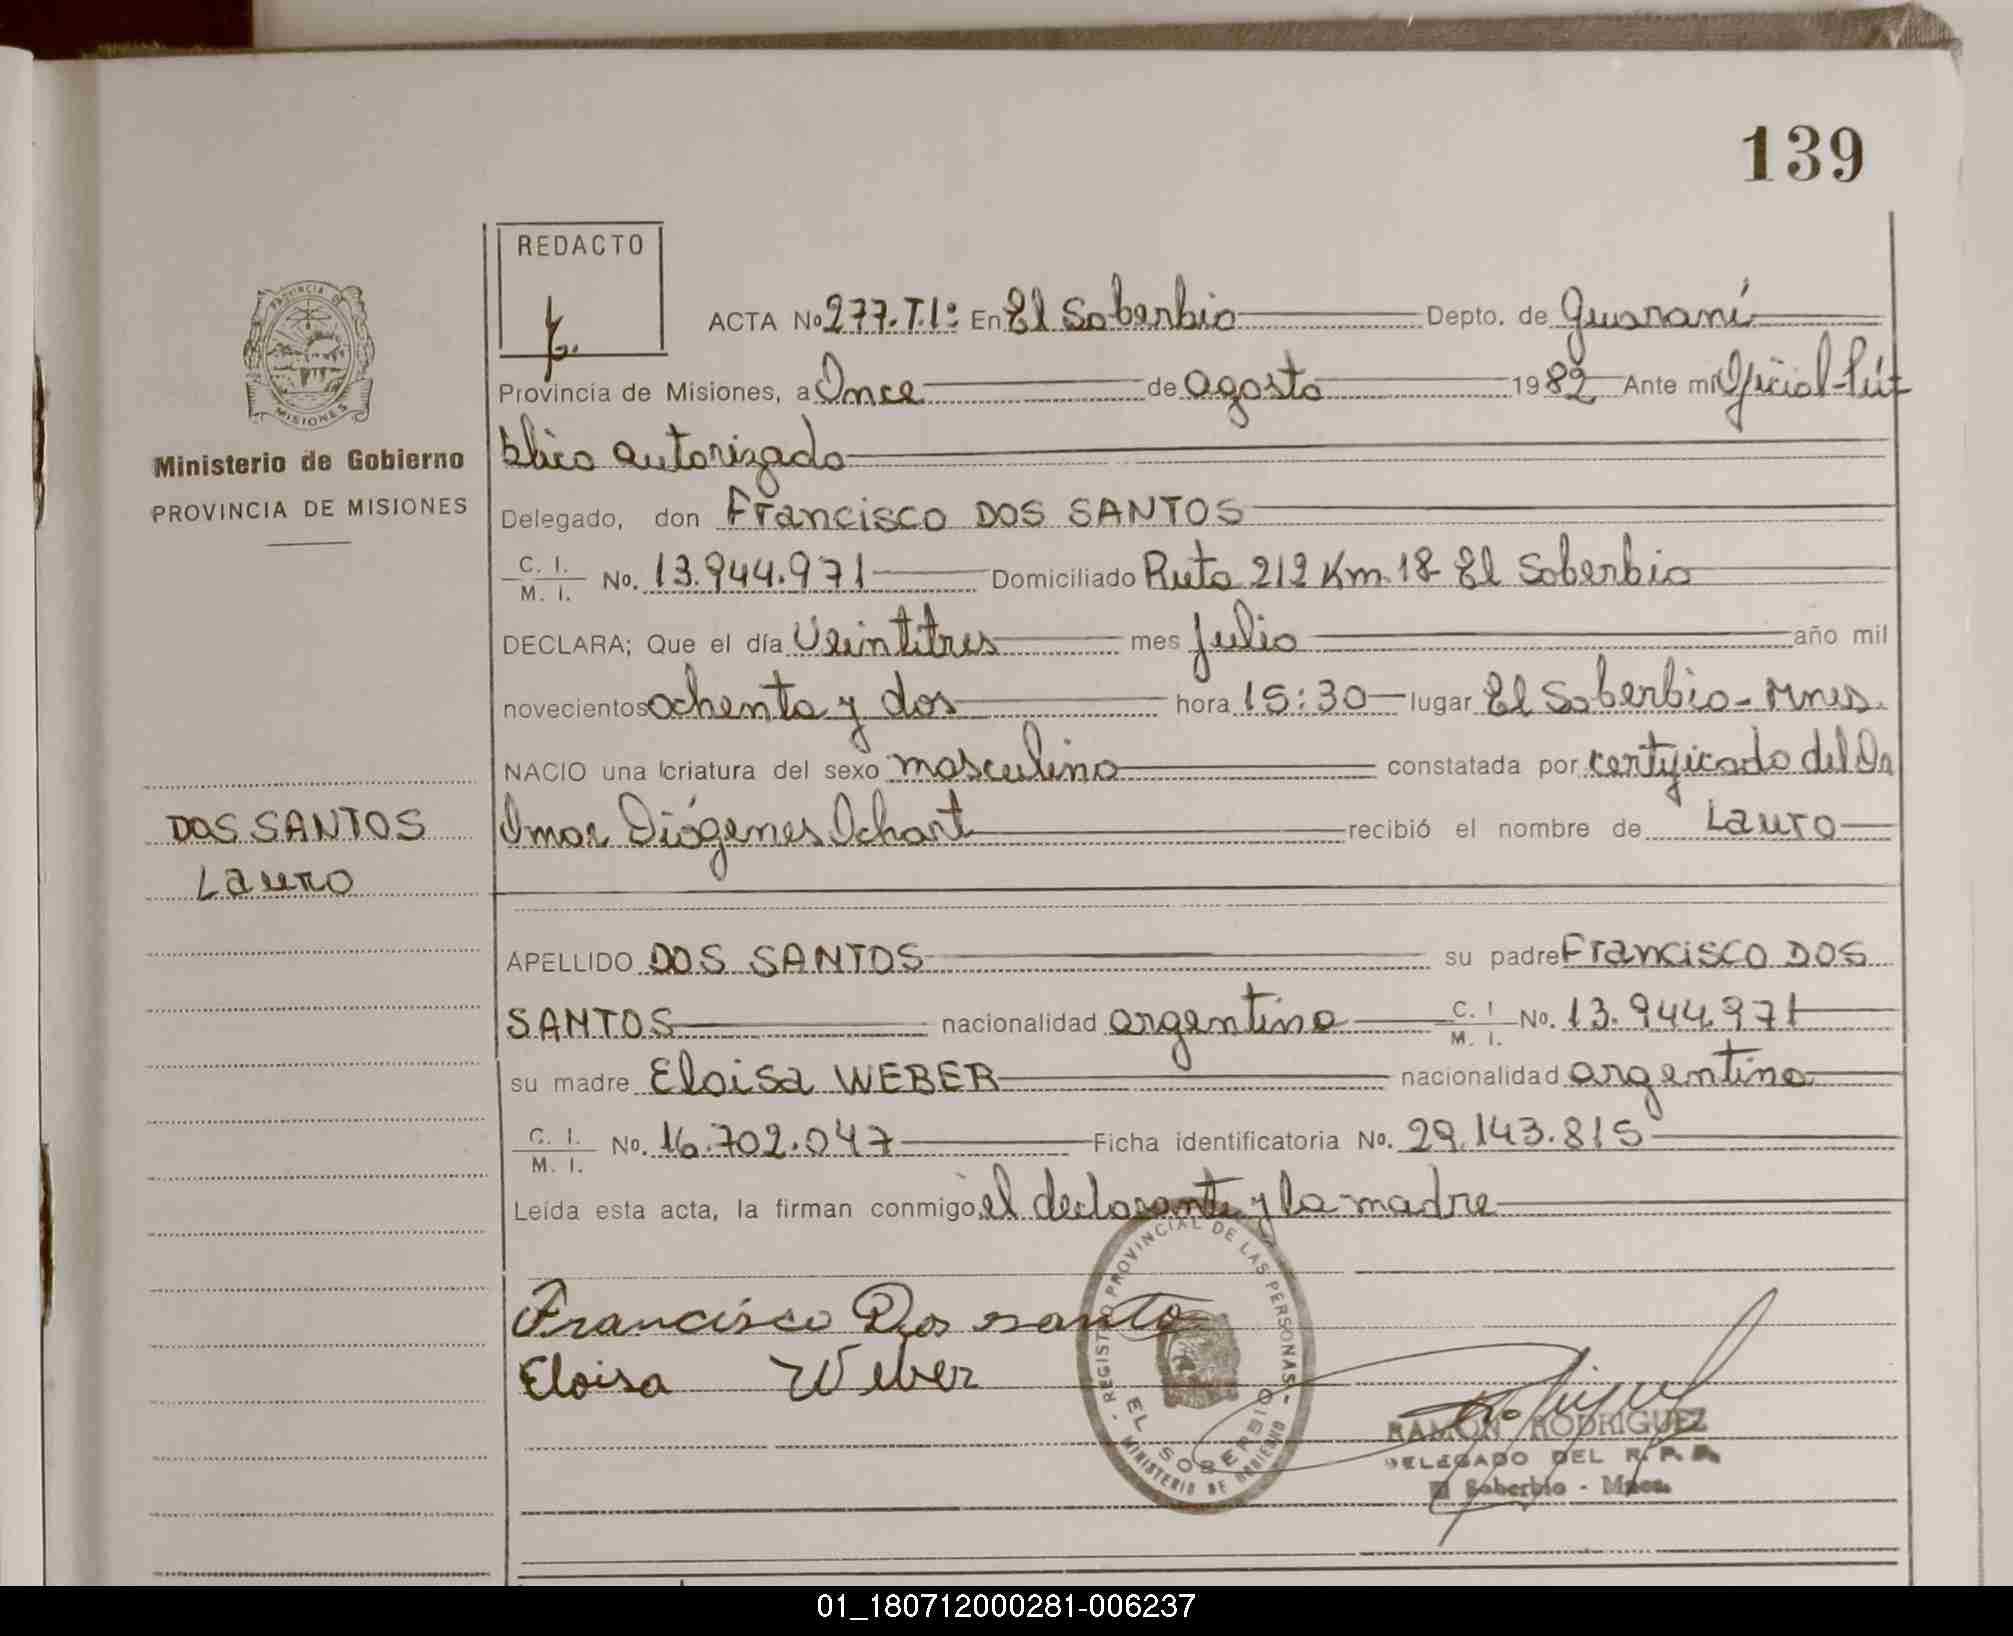 139
REDACTO
ACTA No 277.T.1º En El Soberbio Depto. de Guaraní
Provincia de Misiones, a Once de agosto 1982 Ante mi Oficial Pú-
blico autorizado
Ministerio de Gobierno
PROVINCIA DE MISIONES
Delegado, don Francisco DOS SANTOS
C. I. / M. I. No. 13.944.971 Domiciliado Ruta 212 Km 18 El Soberbio
DECLARA; Que el día Veintitres mes Julio año mil
novecientos ochenta y dos hora 15:30 lugar El Soberbio - Mnes.
NACIO una criatura del sexo masculino constatada por certificado del Dr
Omar Diógenes Ochart recibió el nombre de Lauro
DOS SANTOS
Lauro
APELLIDO DOS SANTOS su padre Francisco DOS
SANTOS nacionalidad argentina C. I. / M. I. No. 13.944.971
su madre Eloisa WEBER nacionalidad argentina
C. I. / M. I. No. 16.702.047 Ficha identificatoria No. 29.143.815
Leída esta acta, la firman conmigo, el declarante y la madre
Francisco Dos santo
Eloisa Weber
REGISTRO PROVINCIAL DE LAS PERSONAS
EL SOBERBIO
MINISTERIO DE GOBIERNO
RAMON RODRIGUEZ
DELEGADO DEL R. P. P.
El Soberbio - Mnes.
PROVINCIA DE
MISIONES
01_180712000281-006237